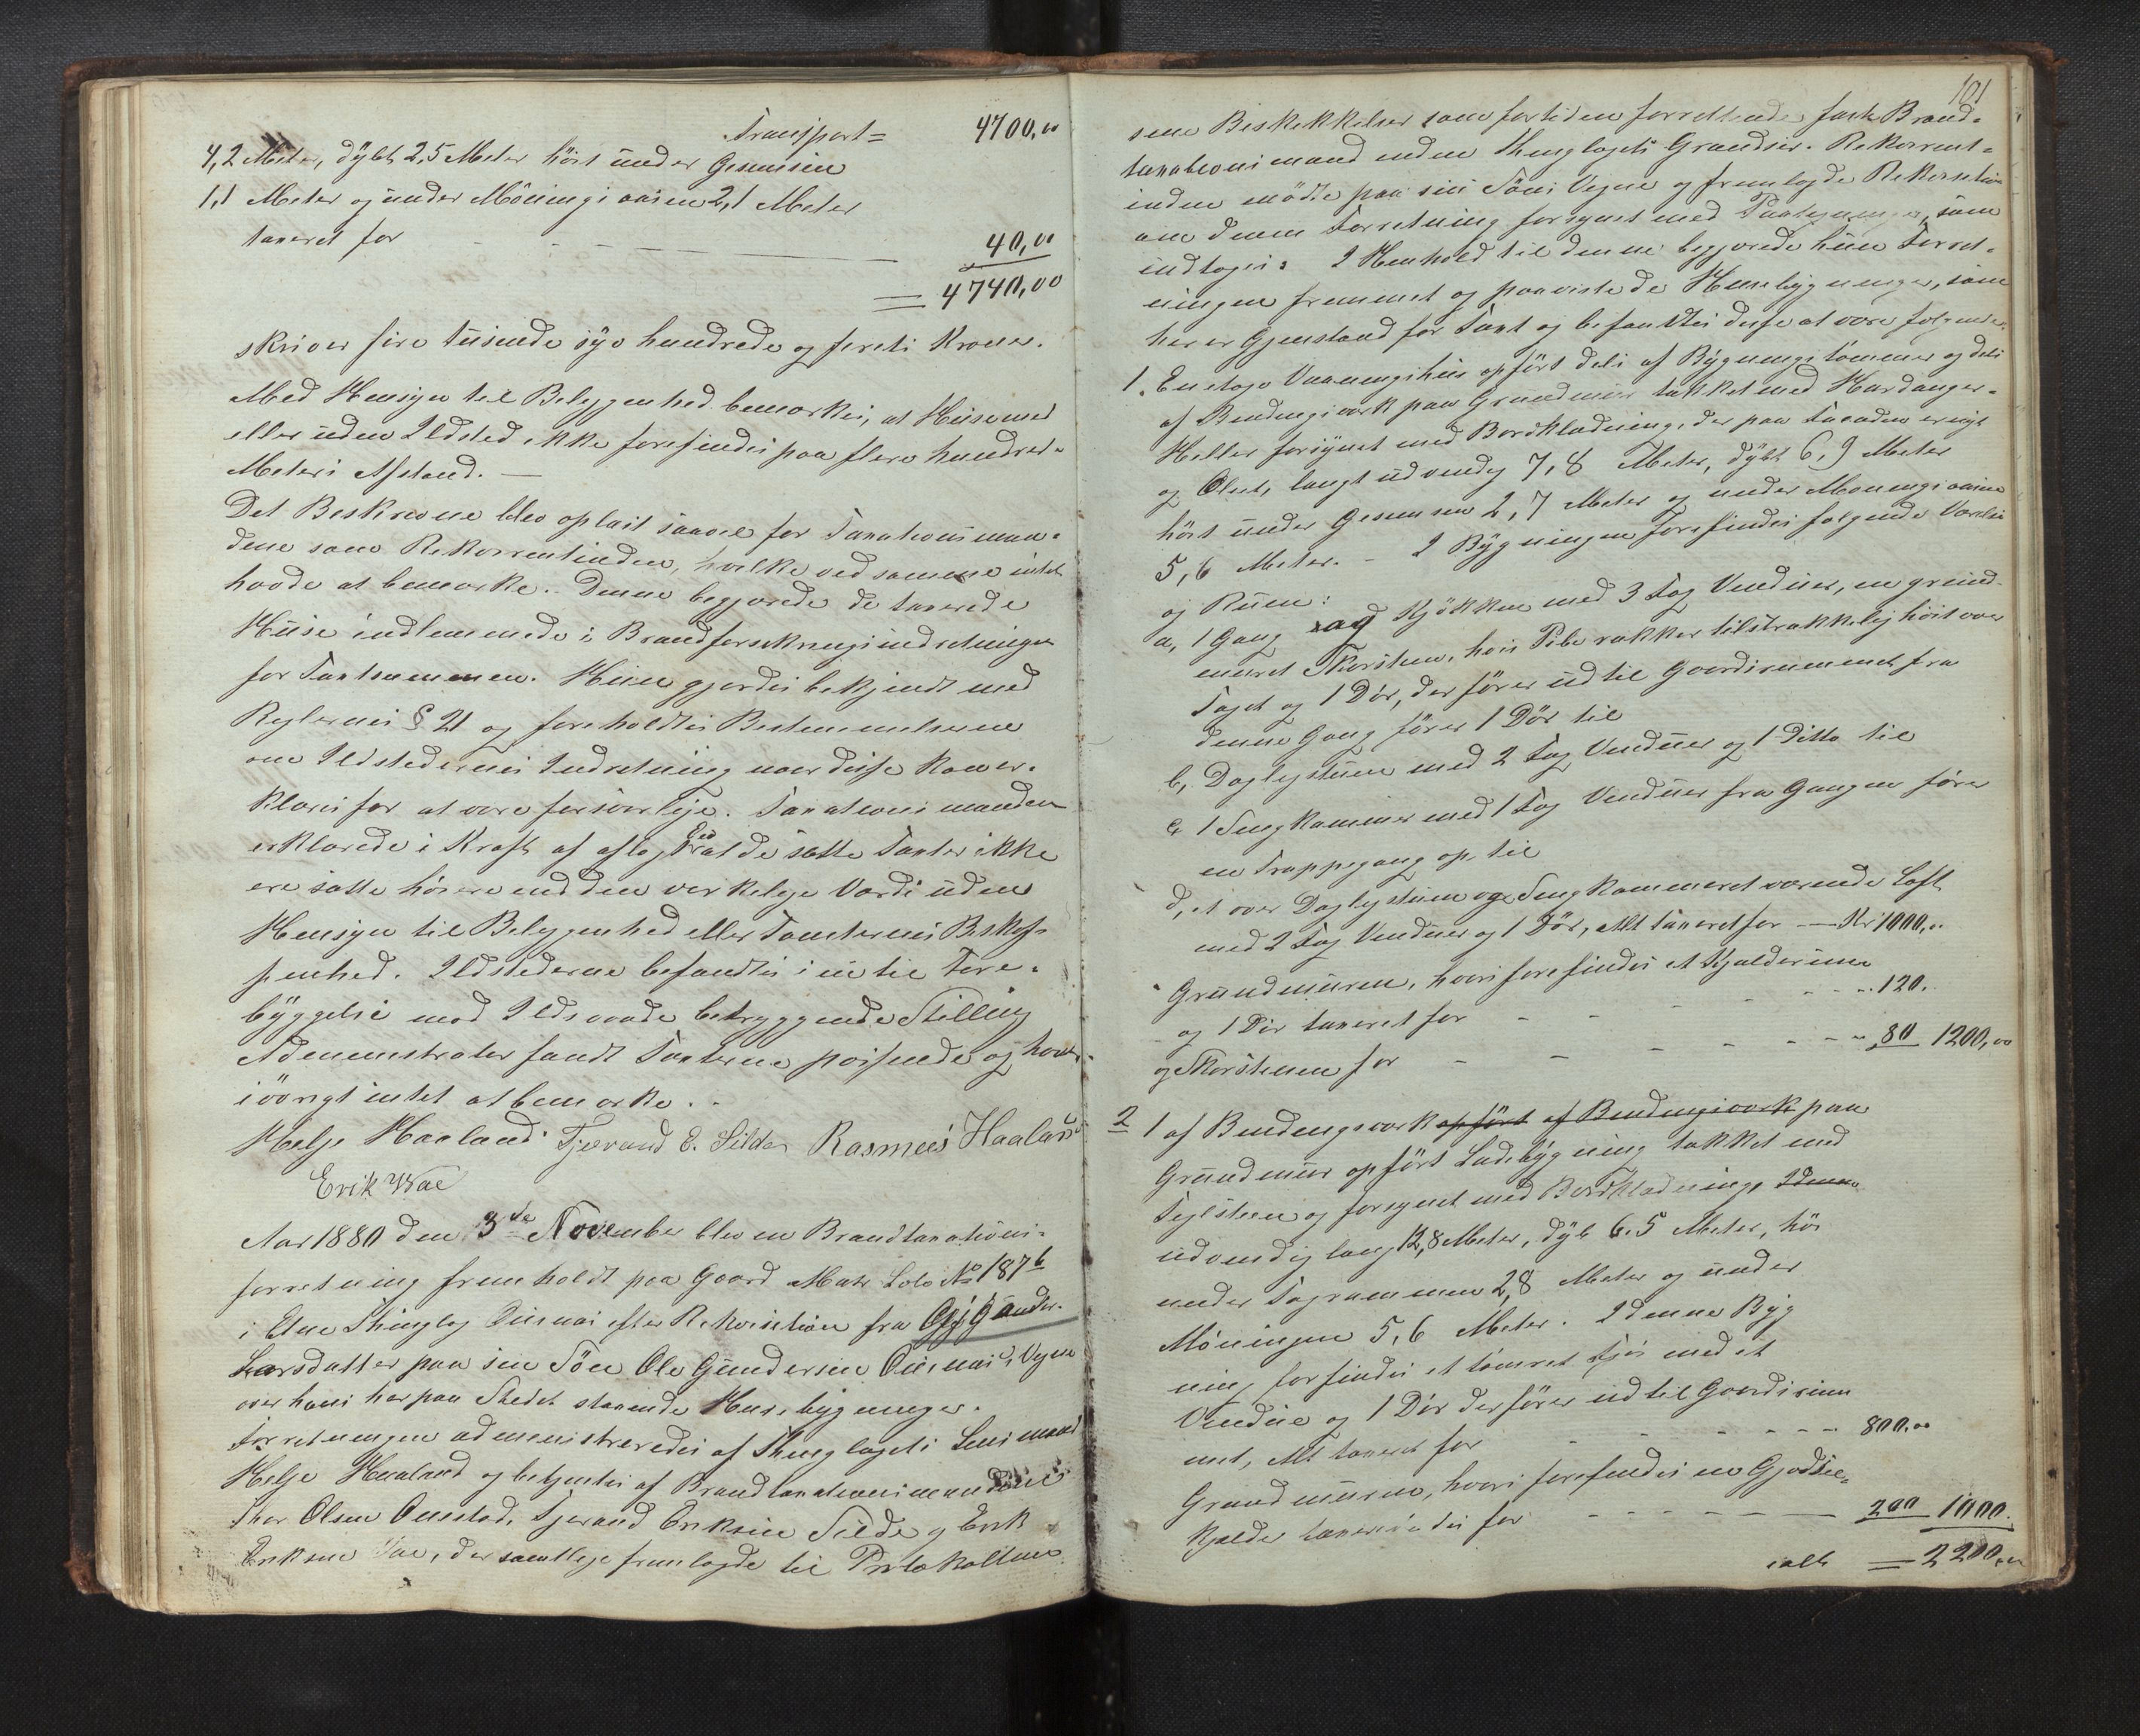 Transport = 4700,00
4,2 Meter, dybt 2,5 Meter höit under Gesemsen
1,1 Meter og under Möningsaasen 2,1 Meter
taxeret for - - - 40,00
= 4740,00
skriver fire tusinde syv hundrede og fireti Kroner.
Med Hensyn til Beleggenhed bemærkes, at Huse med
eller uden Ildsted ikke forefindes paa flere hundred-
Meters Afstand. —
Det Beskrevne blev oplæst saavel for Taxationsmæn-
dene som Rekvirentinden, hvilke ved samme intet
havde at bemærke. Denne begjærede de taxerede
Huse indlemmede i Brandforsikringsindretningen
for Taxtsummen. Hun gjordes bekjendt med
Reglernes § 21 og foreholdtes Bestemmelserne
om Ildstedernes Indretning naar disse kan er-
klæres for at være forsvarlige. Taxationsmændene
erklærede i Kraft af aflagt Eed at de satte Taxter ikke
ere satte höiere end den virkelige Værdi uden
Hensyn til Beleggenhed eller Tomternes Beskaf-
fenhed. Ildstederne befandtes i en til Fore-
byggelse mod Ildsvaade betryggende Stilling
Administrator fandt Taxterne passende og havde
iövrigt intet at bemærke.
Helje Haaland Tjerand E. Silde Rasmus Haaland
Erik Vae
Aar 1880 den 3die November blev en Brandtaxations-
forretning fremholdt paa Gaard Matr Löbe No 187b
i Etne Thinglag Ousnæs efter Rekvisition fra Gjö Gunder
Larsdatter paa sin Sön Ole Gundersen Ousnæs's Vegne
over hans her paa Stedet staaende Husebygninger.
Forretningen administreredes af Thinglagets Lensmand
Helje Haaland og betjentes af Brandtaxationsmændene
Thor Olsen Onestad, Tjerand Eriksen Silde og Erik
Eriksen Vae, der samtlige fremlagde til Protokollen
101
sine Beskikkelser som fortiden forrettende faste Brand-
taxationsmænd inden Thinglagets Grændser. Rekvirent-
inden mödte paa sin Söns Vegne og fremlagde Rekvisition
om denne Forretning forsynet med Paategninger, som
indtages. I Henhold til denne begjærede hun Forret-
ningen fremmet og paaviste de Husebygninger, som
her er Gjenstand for Taxt og befandtes disse at være følgende:
1. En etages Vaaningshus opfört dels af Bygningstömmer og dels
af Bindingsværk paa Grundmur takket med Hardanger-
Heller forsynet med Bordklædning, der paa Facaden er
og Oliet, langt udvendig 7,8 Meter, dybt 6,9 Meter
höit under Gesemsen 2,7 Meter og under Möningsaasen
5,6 Meter. - I Bygningen forefindes følgende Værelser
og Rum:
a, 1 Gang og Kjökken med 3 Fag Vinduer, en grund-
muret Skorsten, hvis Pibe rækker tilstrækkelig höit over
Taget og 1 Dör, der förer ud til Gaardsrummet fra
denne Gang förer 1 Dör til
b, Dagligstuen med 2 Fag Vinduer og 1 Ditto til
c, 1 Sengkammer med 1 Fag Vinduer fra Gangen förer
en Trappegang op til
d, et over Dagligstuen og Sengkammeret værende Loft
med 2 Fag Vinduer og 1 Dör, Alt taxeret for — Kr 1000,00
Grundmuren, hvori forefindes et Kjælderrum
og 1 Dör taxeret for - - - - - 120.
og Skorstenen for - - - - - 80 1200,00
2 1 af Bindingsværk opfört af Bindingsværk paa
Grundmur opfört Ladebygning takket med
Teglsteen og forsynet med Bordklædning, I denne
udvendig lang 12,8 Meter, dyb 6.5 Meter, höi
under Tagrummen 2,8 Meter og under
Möningen 5,6 Meter. I denne Byg
ning forfindes et tömret Fjös med et
Vindue og 1 Dör der förer ud til Gaardsrum
met, Alt taxeret for - - - - - 800,00
Grundmuren, hvori forefindes en Gjödsel-
kjelder taxeredes for - - - - - 200 1000.
ialt = 2200,00